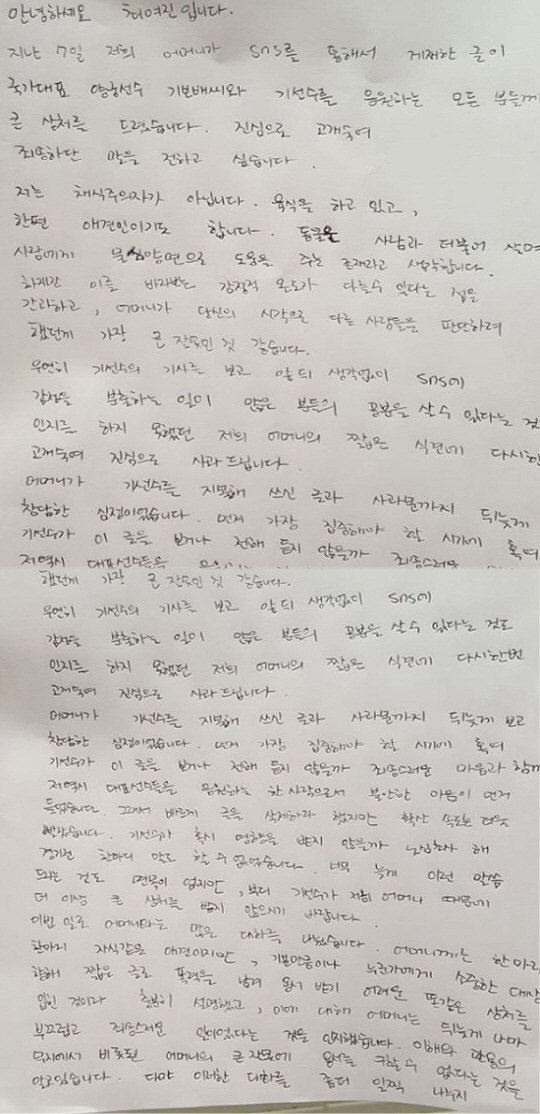 안녕하세요 최여진입니다.
지난 7일 저희 어머니가 SNS를 통해서 게재한 글이
국가대표 양궁선수 기보배씨와 기선수를 응원하는 모든 분들께
큰 상처를 드렸습니다. 진심으로 고개숙여
죄송하단 말을 전하고 싶습니다.
저는 채식주의자가 아닙니다. 육식을 하고 있고,
한편 애견인이기도 합니다. 동물은 사람과 더불어 살며
사람에게 물심양면으로 도움을 주는 존재라고 생각합니다.
하지만 이를 바라보는 감정적 온도가 다를수 있다는 점을
간과하고, 어머니가 당신의 시각으로 다른 사람들을 판단하려
했던게 가장 큰 잘못인 것 같습니다.
우연히 기선수의 기사를 보고 앞뒤 생각없이 SNS에
감정을 분출하는 일이 많은 분들의 공분을 살 수 있다는 것
인지조 하지 못했던 저희 어머니의 짧은 식견에 다시한
고개숙여 진심으로 사과드립니다.
어머니가 기선수를 지목해 쓰신 글과 사과문까지 뒤늦게
참담한 심정이었습니다. 먼저 가장 집중해야 할 시기에 혹여
기선수가 이 글을 보거나 전해 듣지 않을까 죄송스러운
저역시 대표선수들을
했던게 가장 큰 잘못인 것 같습니다.
우연히 기선수의 기사를 보고 앞뒤 생각없이 SNS에
감정을 분출하는 일이 많은 분들의 공분을 살 수 있다는 것도
인지조 하지 못했던 저희 어머니의 짧은 식견에 다시한번
고개숙여 진심으로 사과드립니다.
어머니가 기선수를 지목해 쓰신 글과 사과문까지 뒤늦게 보고
참담한 심정이었습니다. 먼저 가장 집중해야 할 시기에 혹여
기선수가 이 글을 보거나 전해 듣지 않을까 죄송스러운 마음과 함께
저역시 대표선수들을 응원하는 한 사람으로서 불안한 마음이 먼저
들었습니다. 그래서 바르게 글을 삭제하라 했지만 확산 속도는 더욱
빨랐습니다. 기선수가 혹시 영향을 받지 않을까 노심초사 해
경기전 한마디 말도 할 수 없었습니다. 너무 늦게 이런 말씀
드리는 것도 면목이 없지만, 부디 기선수가 저희 어머니 때문에
더 이상 큰 상처를 받지 않으시기 바랍니다.
이번 일로 어머니와는 많은 대화를 나눴습니다. 어머니께는 한마리
한마리 자식같은 애견이지만, 기본만응이나 누군가에게 소중한 대상
향해 짧은 글로 폭력을 남겨 왔시 받기 어려운 똑같은 상처를
입힌 것이라 충분히 설명했고, 이에 대해 어머니는 뒤늦게 나마
부끄럽고 죄송스러운 일이었다는 것을 인지했습니다. 이해와 관용의
무지에서 비롯된 어머니의 큰 잘못에 용서를 구할 수 없다는 것을
알고있습니다. 다만 이러한 대화를 좀더 일찍 나누지